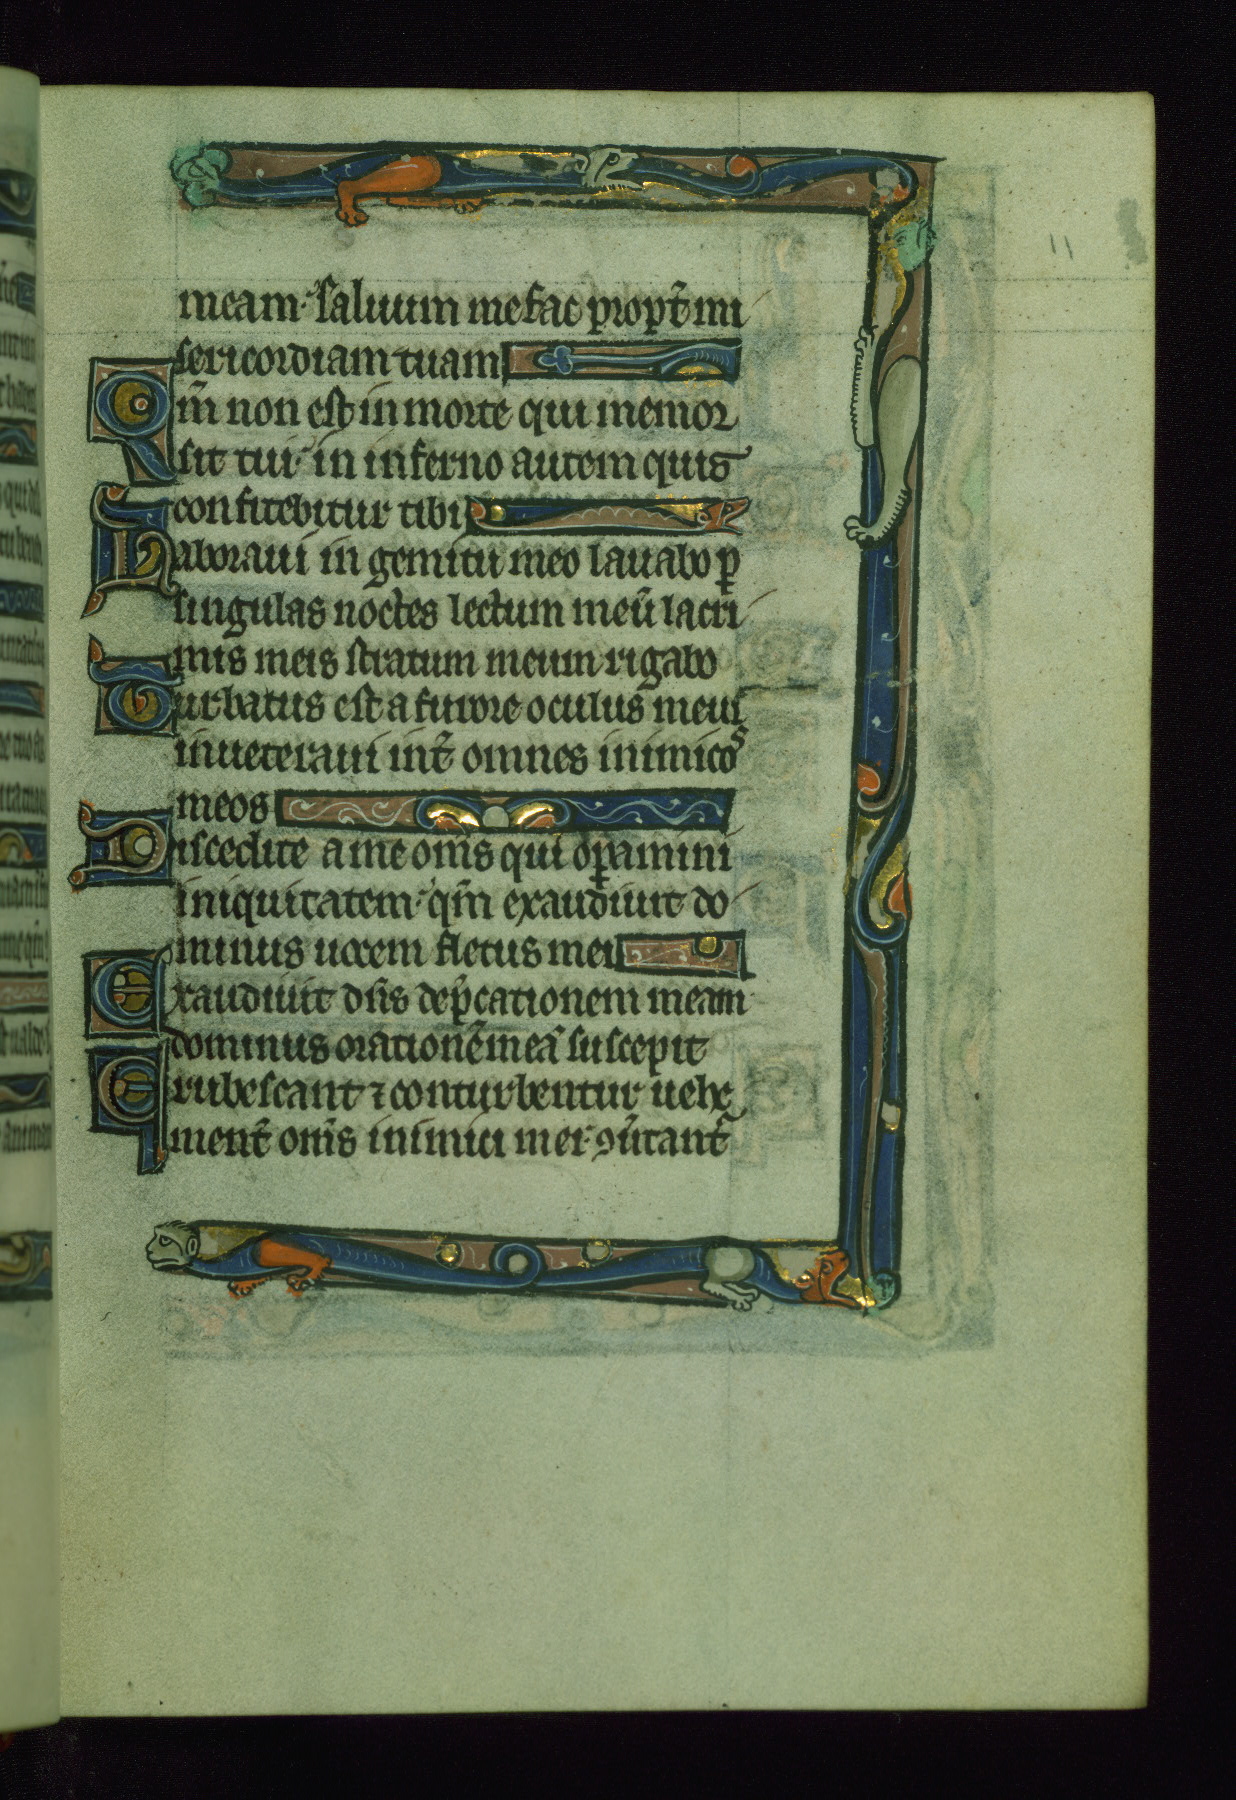 11
meam· saluum me fac propt̄ mi
sericordiam tuam
Qm̄ non est in morte qui memor
sit tui· in inferno autem quis
confitebitur tibi
Laboraui in gemitu meo lauabo ꝑ
singulas noctes lectum meū lacri
mis meis stratum meum rigabo
Turbatus est a furore oculus meus
inueteraui int̄ omnes inimicos
meos
Discedite a me om̄s qui oꝑamini
iniquitatem· qm̄ exaudiuit do
minus uocem fletus mei
Exaudiuit dn̄s dep̄cationem meam
dominus orationē meā suscepit
Erubescant ⁊ conturbentur uehe
ment̄ om̄s inimici mei· ꝯũtant᷑